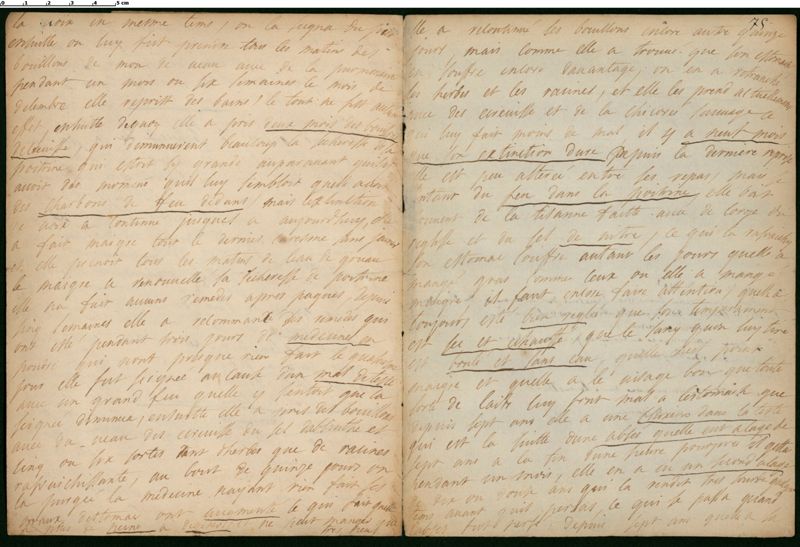 la voix en mesme tems, on la seigna du pied
ensuitte on luy fist prendre tous les matins des
bouillons de mou de veau avec de la pulmonaire
pendant un mois ou six semaines le mois de
decembre elle reprist des bains le tout ne fist aucun
effet, ensuitte elle a pris deux mois des bouillons
decrevisse, qui diminuerent beaucoup la secheresse de
poitrine qui estoit sy grande auparavant quil y
avoit des momens quil luy sembloit quelle avoit
des charbons de feu dedans, mais lextinction
de voix a continué jusques a aujourdhuy, elle
a fait maigre tout le dernier caresme, sans
elle prenoit tous les matins de leau de gruau
le maigre a renouvellé la secheresse de poitrine
elle na fait aucuns remedes apres paques, depuis
cinq semaines elle a recommancé des remedes qui
ont esté pendant trois jours de medecines en
poudre qui nont presque rien fait le quatrieme
jour elle fut seignée a cause dun mal de teste
avec un grand feu quelle y sentoit que la
seignée diminua, ensuitte elle a pris des bouillons
avec du veau des ecrevisse du sel et
cinq ou six sortes tant dherbes que de racines
rafraichissante, au bout de quinze jours on
la purgea la medecine nayant rien fait les
maux destomac ont augmenté ce qui fait quelle
a plus de peine a digerer et ne peut manger
75
elle a recontinué les bouillons encore autre quinze
jours mais comme elle a trouvé que son estomac
en soufre encore davantage, on en a retranché
les herbes et les racines, et elle les prend actuellement
avec des ecrevisse et de la chicorée sauvage
qui luy fait moins de mal il y a neuf mois
que son extinction dure depuis la derniere
elle est peu alteree entre ses repas, mais
sentant du feu dans la poitrine, elle boit
souvent de la tisanne faitte avec de lorge du
reglisse et du sel de nitre, ce qui la rafraichi
son estomac souffre autant les jours quelle
mange gras comme ceux ou elle a mangé
maigre et faut encore faire attention, quelle a
toujours esté bien reglée que son temperament
est sec et echauffé, que le sang quon luy tire
est rouge et sans eau, quelle dort peu
maigre et quelle a le visage bon que toute
sorte de lait luy font mal a lestomach que
depuis sept ans elle a une dans la teste
qui est la suitte dune abses quelle eut a lage de
sept ans a la fin dune fievre pourprée et
pendant un mois, elle en a eu un second a lage
de dix ou douze ans qui la rendit tres sourde quelque
tems avant quil persat, ce qui se passa quand
labses fut percé. Depuis sept ans quelle a